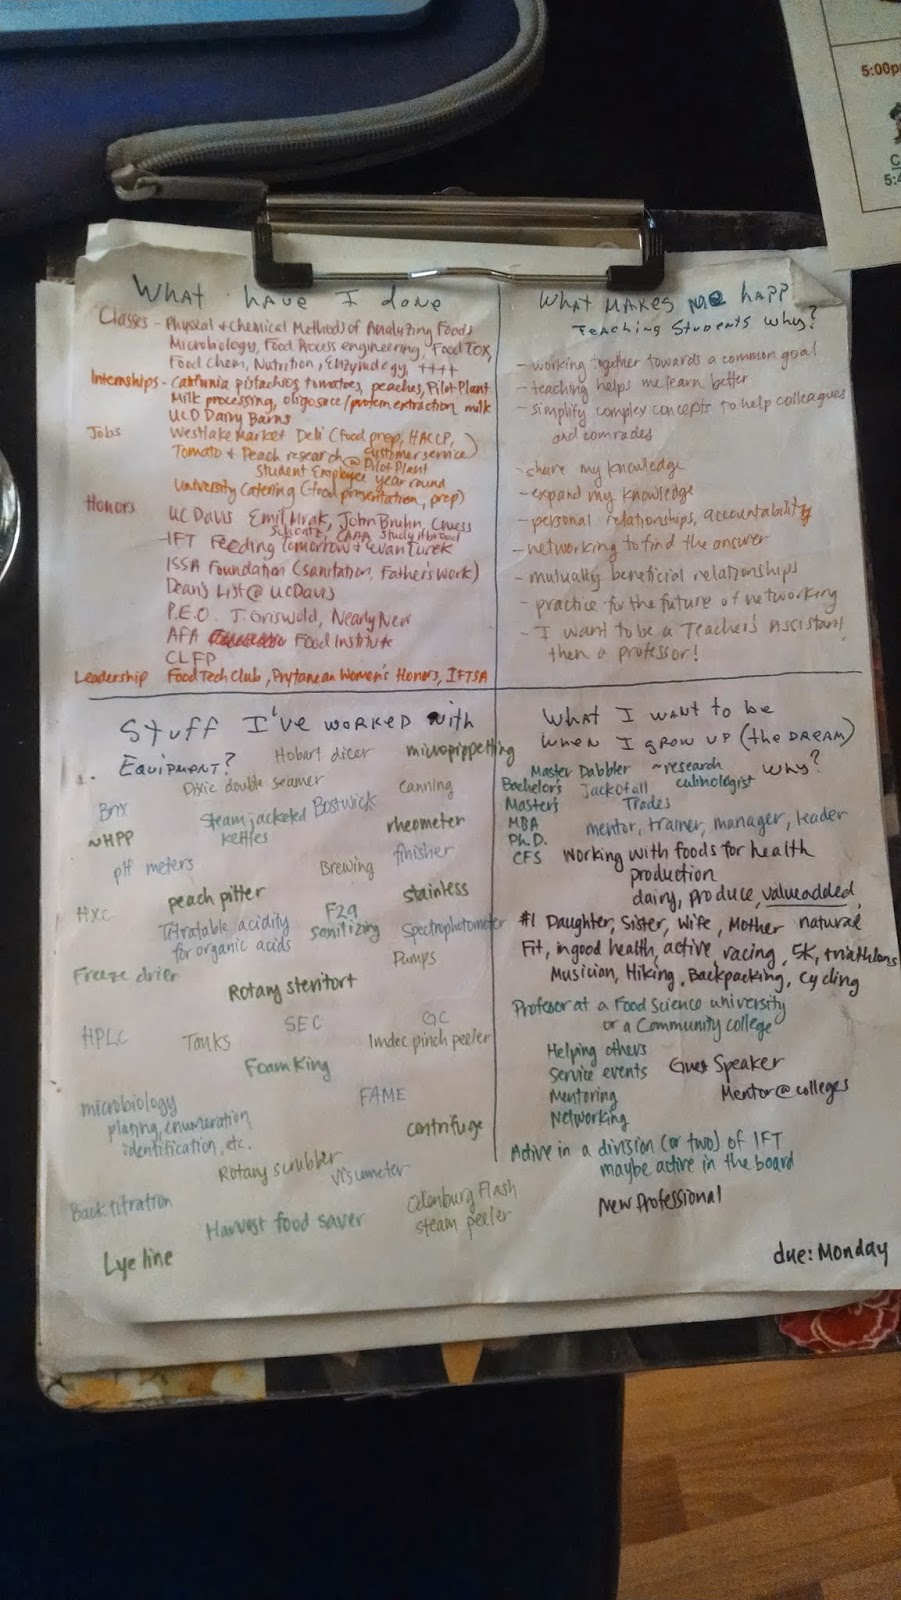 What have I done
Classes - Physical + Chemical Methods of Analyzing Foods
Microbiology, Food Access engineering, Food Tox,
Food Chem, Nutrition, Enzymology, ++++
Internships - California pistachios, tomatoes, peaches, Pilot Plant
Milk processing, oligosacc/protein extraction milk
UCD Dairy Barns
Jobs Westlake Market Deli (food prep, HACCP,
customer service)
Tomato & Peach research @ Pilot Plant
Student Employee year round
University Catering (food presentation, prep)
Honors UC Davis Emil Mrak, John Bruhn, Cruess
Schwartz, CAAA Study Abroad
IFT Feeding Tomorrow & Evan Turek
ISSA Foundation (sanitation, Father's work)
Dean's List @ UC Davis
P.E.O. J. Griswold, Nearly New
AFA Food Institute
CLFP
Leadership Food Tech Club, Prytanean Women's Honors, IFTSA
What makes me happ
Teaching Students Why?
- working together towards a common goal
- teaching helps me learn better
- simplify complex concepts to help colleagues
and comrades
- share my knowledge
- expand my knowledge
- personal relationships, accountability
- networking to find the answer
- mutually beneficial relationships
- practice for the future of networking
- I want to be a Teacher's Assistant!
then a professor!
Stuff I've worked with
Equipment?
Hobart dicer
micropippetting
Dixie double seamer
canning
Brix
Steam jacketed
kettles
Bostwick
rheometer
~HPP
finisher
pH meters
Brewing
peach pitter
stainless
HXC
F29
sanitizing
Titratable acidity
for organic acids
Spectrophotometer
Pumps
Freeze drier
Rotary steritort
SEC
GC
HPLC
Tanks
Imdec pinch peeler
Foam King
FAME
microbiology
plating, enumeration,
identification, etc.
centrifuge
Rotary scrubber
Viscometer
Back titration
Harvest food saver
Flash
steam peeler
Lye line
What I want to be
when I grow up (the DREAM)
Why?
Master Dabbler ~research
culinologist
Bachelor's Jack of all
Master's Trades
MBA mentor, trainer, manager, leader
Ph.D.
CFS Working with foods for health
production
dairy, produce, value added,
natural
#1 Daughter, Sister, Wife, Mother
Fit, in good health, active, racing, 5K, triathlons
Musician, Hiking, Backpacking, cycling
Profesor at a Food Science university
or a Community college
Helping others
Service events
Guest Speaker
Mentoring
Mentor @ colleges
Networking
Active in a division (or two) of IFT
maybe active in the board
New Professional
due: Monday
5:00p